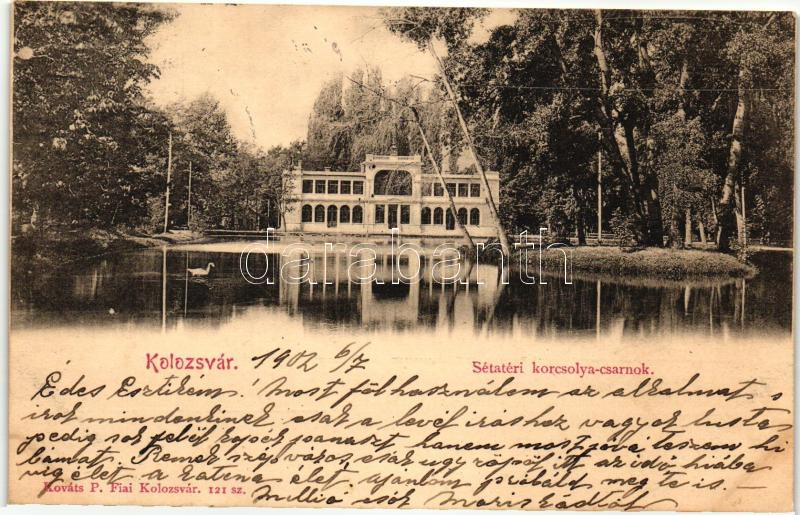 darabanth
Kolozsvár. 1902 6/7
Sétatéri korcsolya-csarnok.
Édes Esztikém! Most fölhasználom az alkalmat s
irok mindenkinek csak a levél iráshoz vagyok lusta
pedig sok felől kapok panaszt hanem most jóvá teszem hi
bámat. Remek szép város, csak ugy röpöl itt az idő hiába
vig élet a katona élet, ajánlom próbáld meg te is. —
Millió csók Mariskádtól
Kováts P. Fiai Kolozsvár. 121 sz.